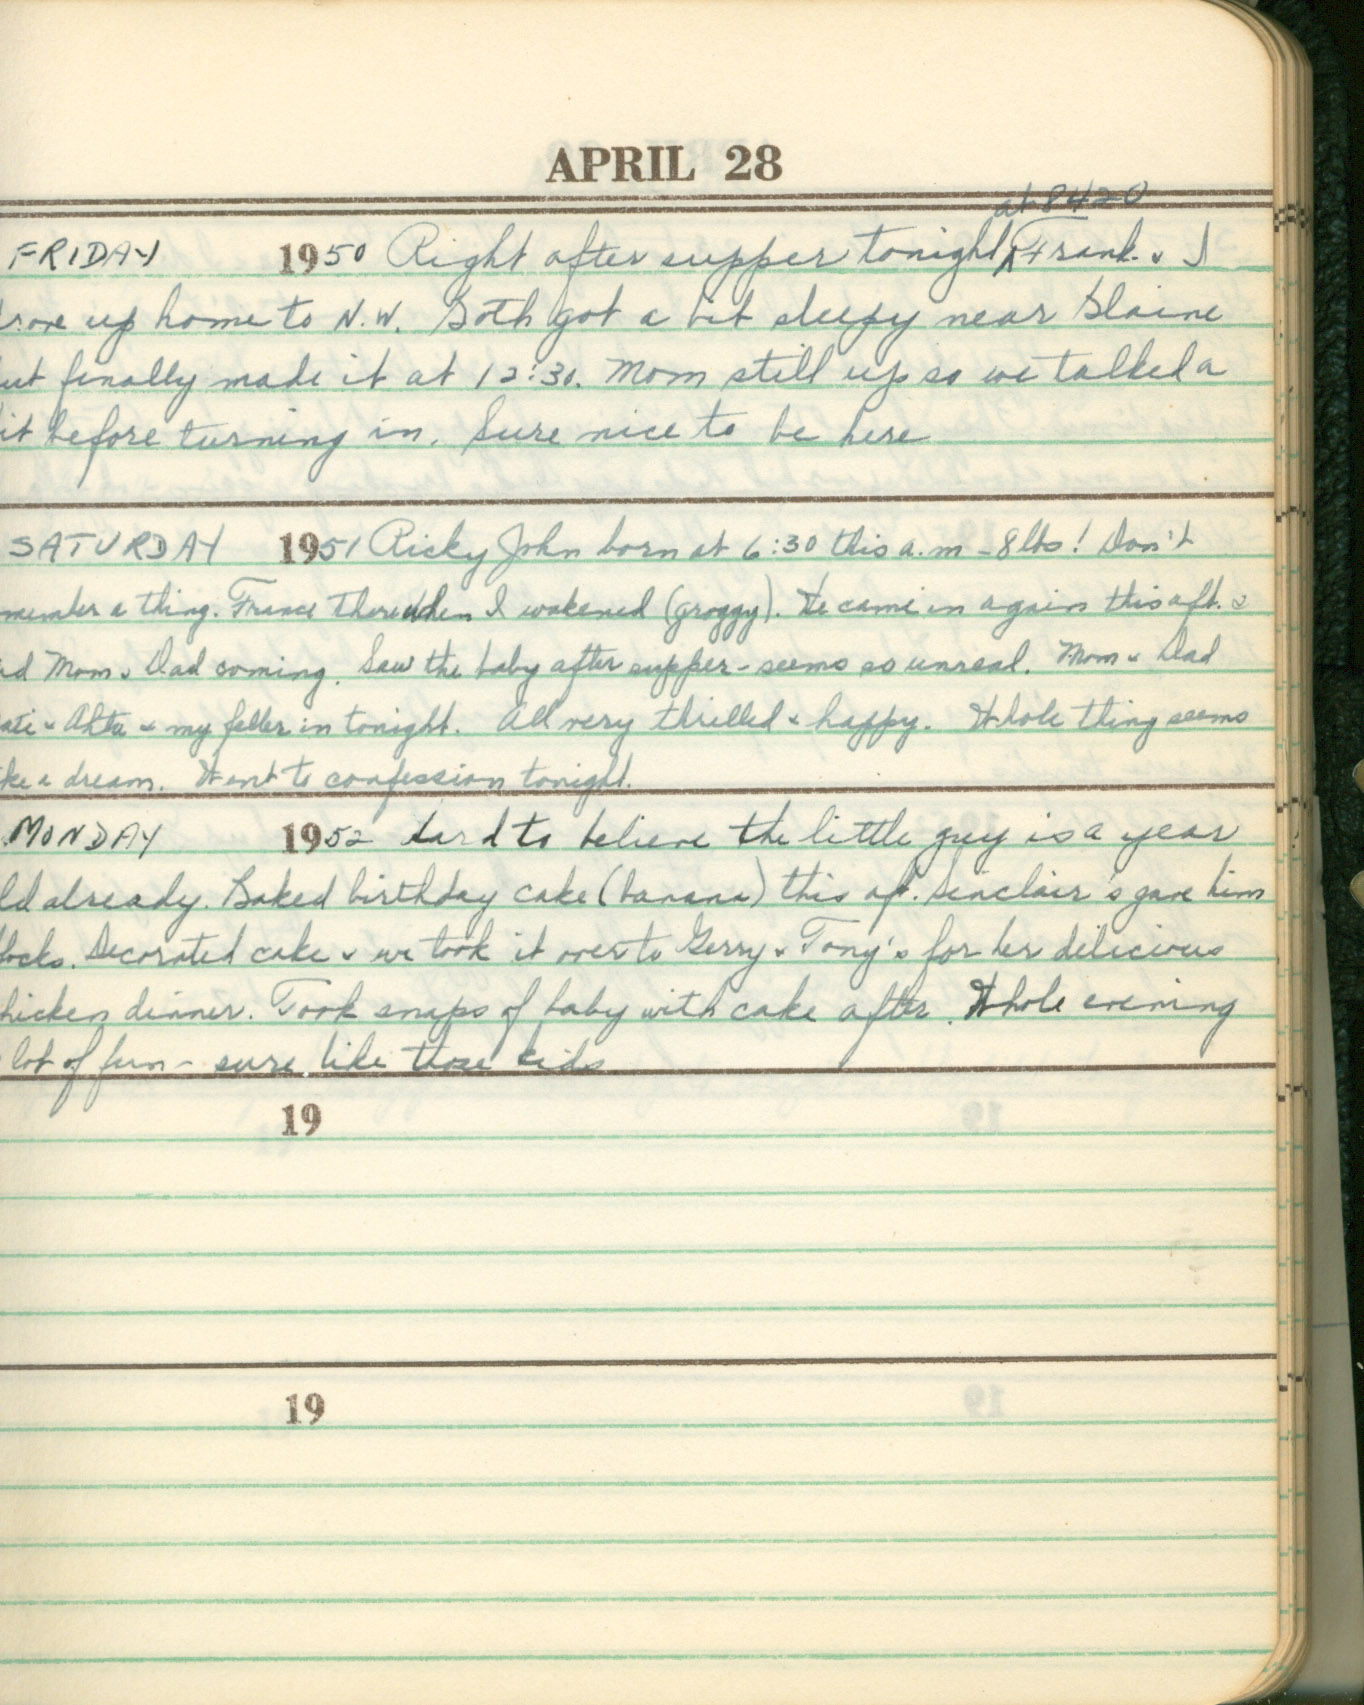 APRIL 28
at 8420
FRIDAY 1950 Right after supper tonight ^ Frank & I
rove up home to N.W. Both got a bit sleepy near Blaine
ut finally made it at 12:30. Mom still up so we talked a
it before turning in. Sure nice to be here
SATURDAY 1951 Ricky John born at 6:30 this a.m - 8 lbs! Don't
member a thing. France there when I wakened (groggy). He came in again this aft. &
nd Mom & Dad coming. Saw the baby after supper - seems so unreal. Mom & Dad
& my feller in tonight. All very thrilled & happy. Whole thing seems
ke a dream. Went to confession tonight.
MONDAY 1952 Hard to believe the little guy is a year
ld already. Baked birthday cake (banana) this af. Sinclair's gave him
locks. Decorated cake & we took it over to Gerry & Tony's for her delicious
hicken dinner. Took snaps of baby with cake after. Whole evening
lot of fun - sure like those kids
19
19